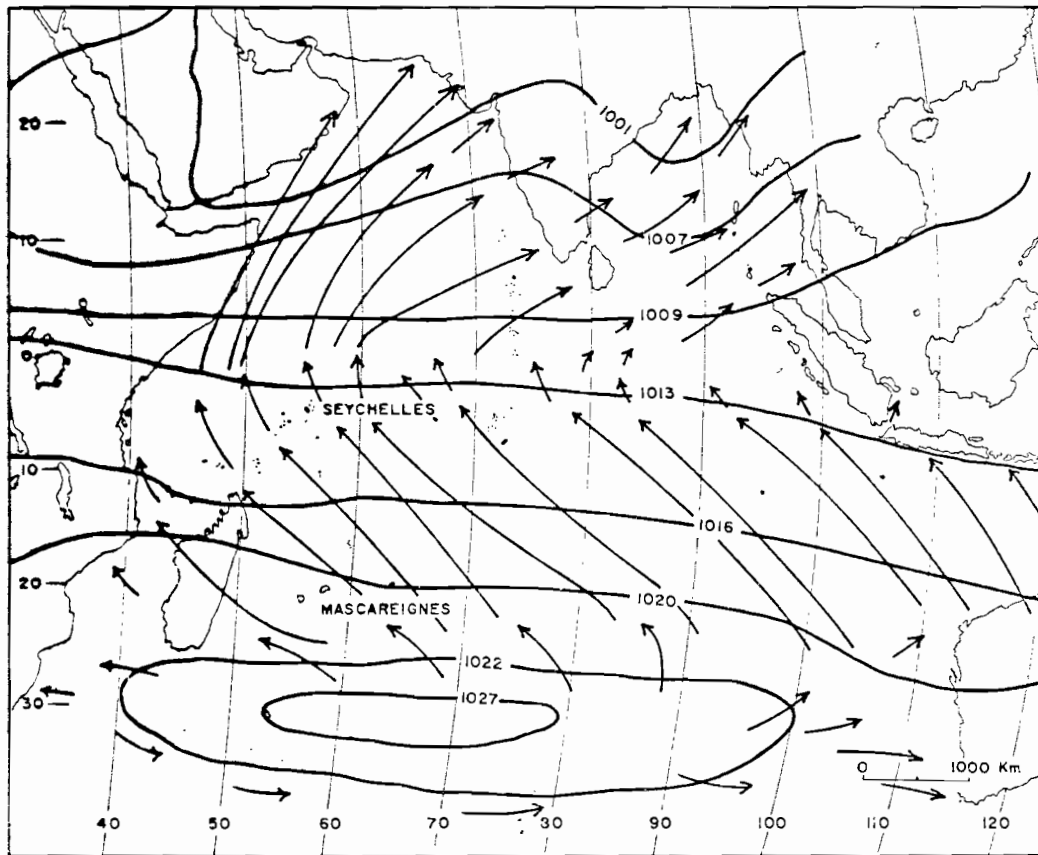 1001
20
10
1007
1009
0
1013
SEYCHELLES
10
1016
20
MASCAREIGNES
1020
1022
30
1027
0 1000 Km
40 50 60 70 30 90 100 110 120